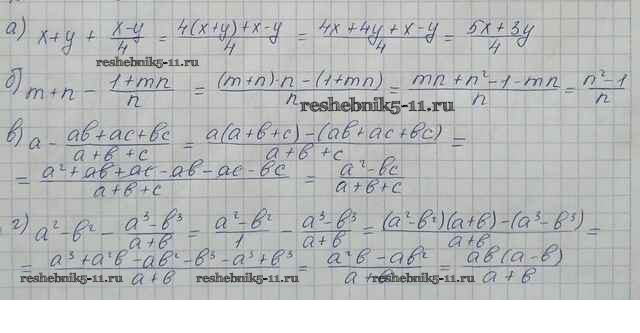 а) x+y + (x-y)/4 = (4(x+y)+x-y)/4 = (4x+4y+x-y)/4 = (5x+3y)/4
reshebnik5-11.ru
б) m+n - (1+mn)/n = ((m+n)·n-(1+mn))/n = (mn+n²-1-mn)/n = (n²-1)/n
reshebnik5-11.ru
в) a - (ab+ac+bc)/(a+b+c) = (a(a+b+c)-(ab+ac+bc))/(a+b+c) =
= (a²+ab+ac-ab-ac-bc)/(a+b+c) = (a²-bc)/(a+b+c)
г) a²-b² - (a³-b³)/(a+b) = (a²-b²)/1 - (a³-b³)/(a+b) = ((a²-b²)(a+b)-(a³-b³))/(a+b) =
= (a³+a²b-ab²-b³-a³+b³)/(a+b) = (a²b-ab²)/(a+b) = ab(a-b)/(a+b)
reshebnik5-11.ru reshebnik5-11.ru reshebnik5-11.ru